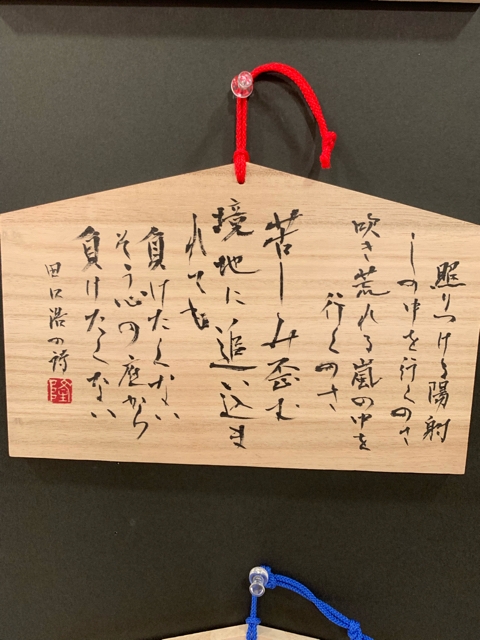 照りつける陽射
しの中を行くのさ
吹き荒れる嵐の中を
行くのさ
苦しみ歪む
境地に追い込ま
れても
負けたくない
そう心の底から
負けたくない
田口浩の詩
隆